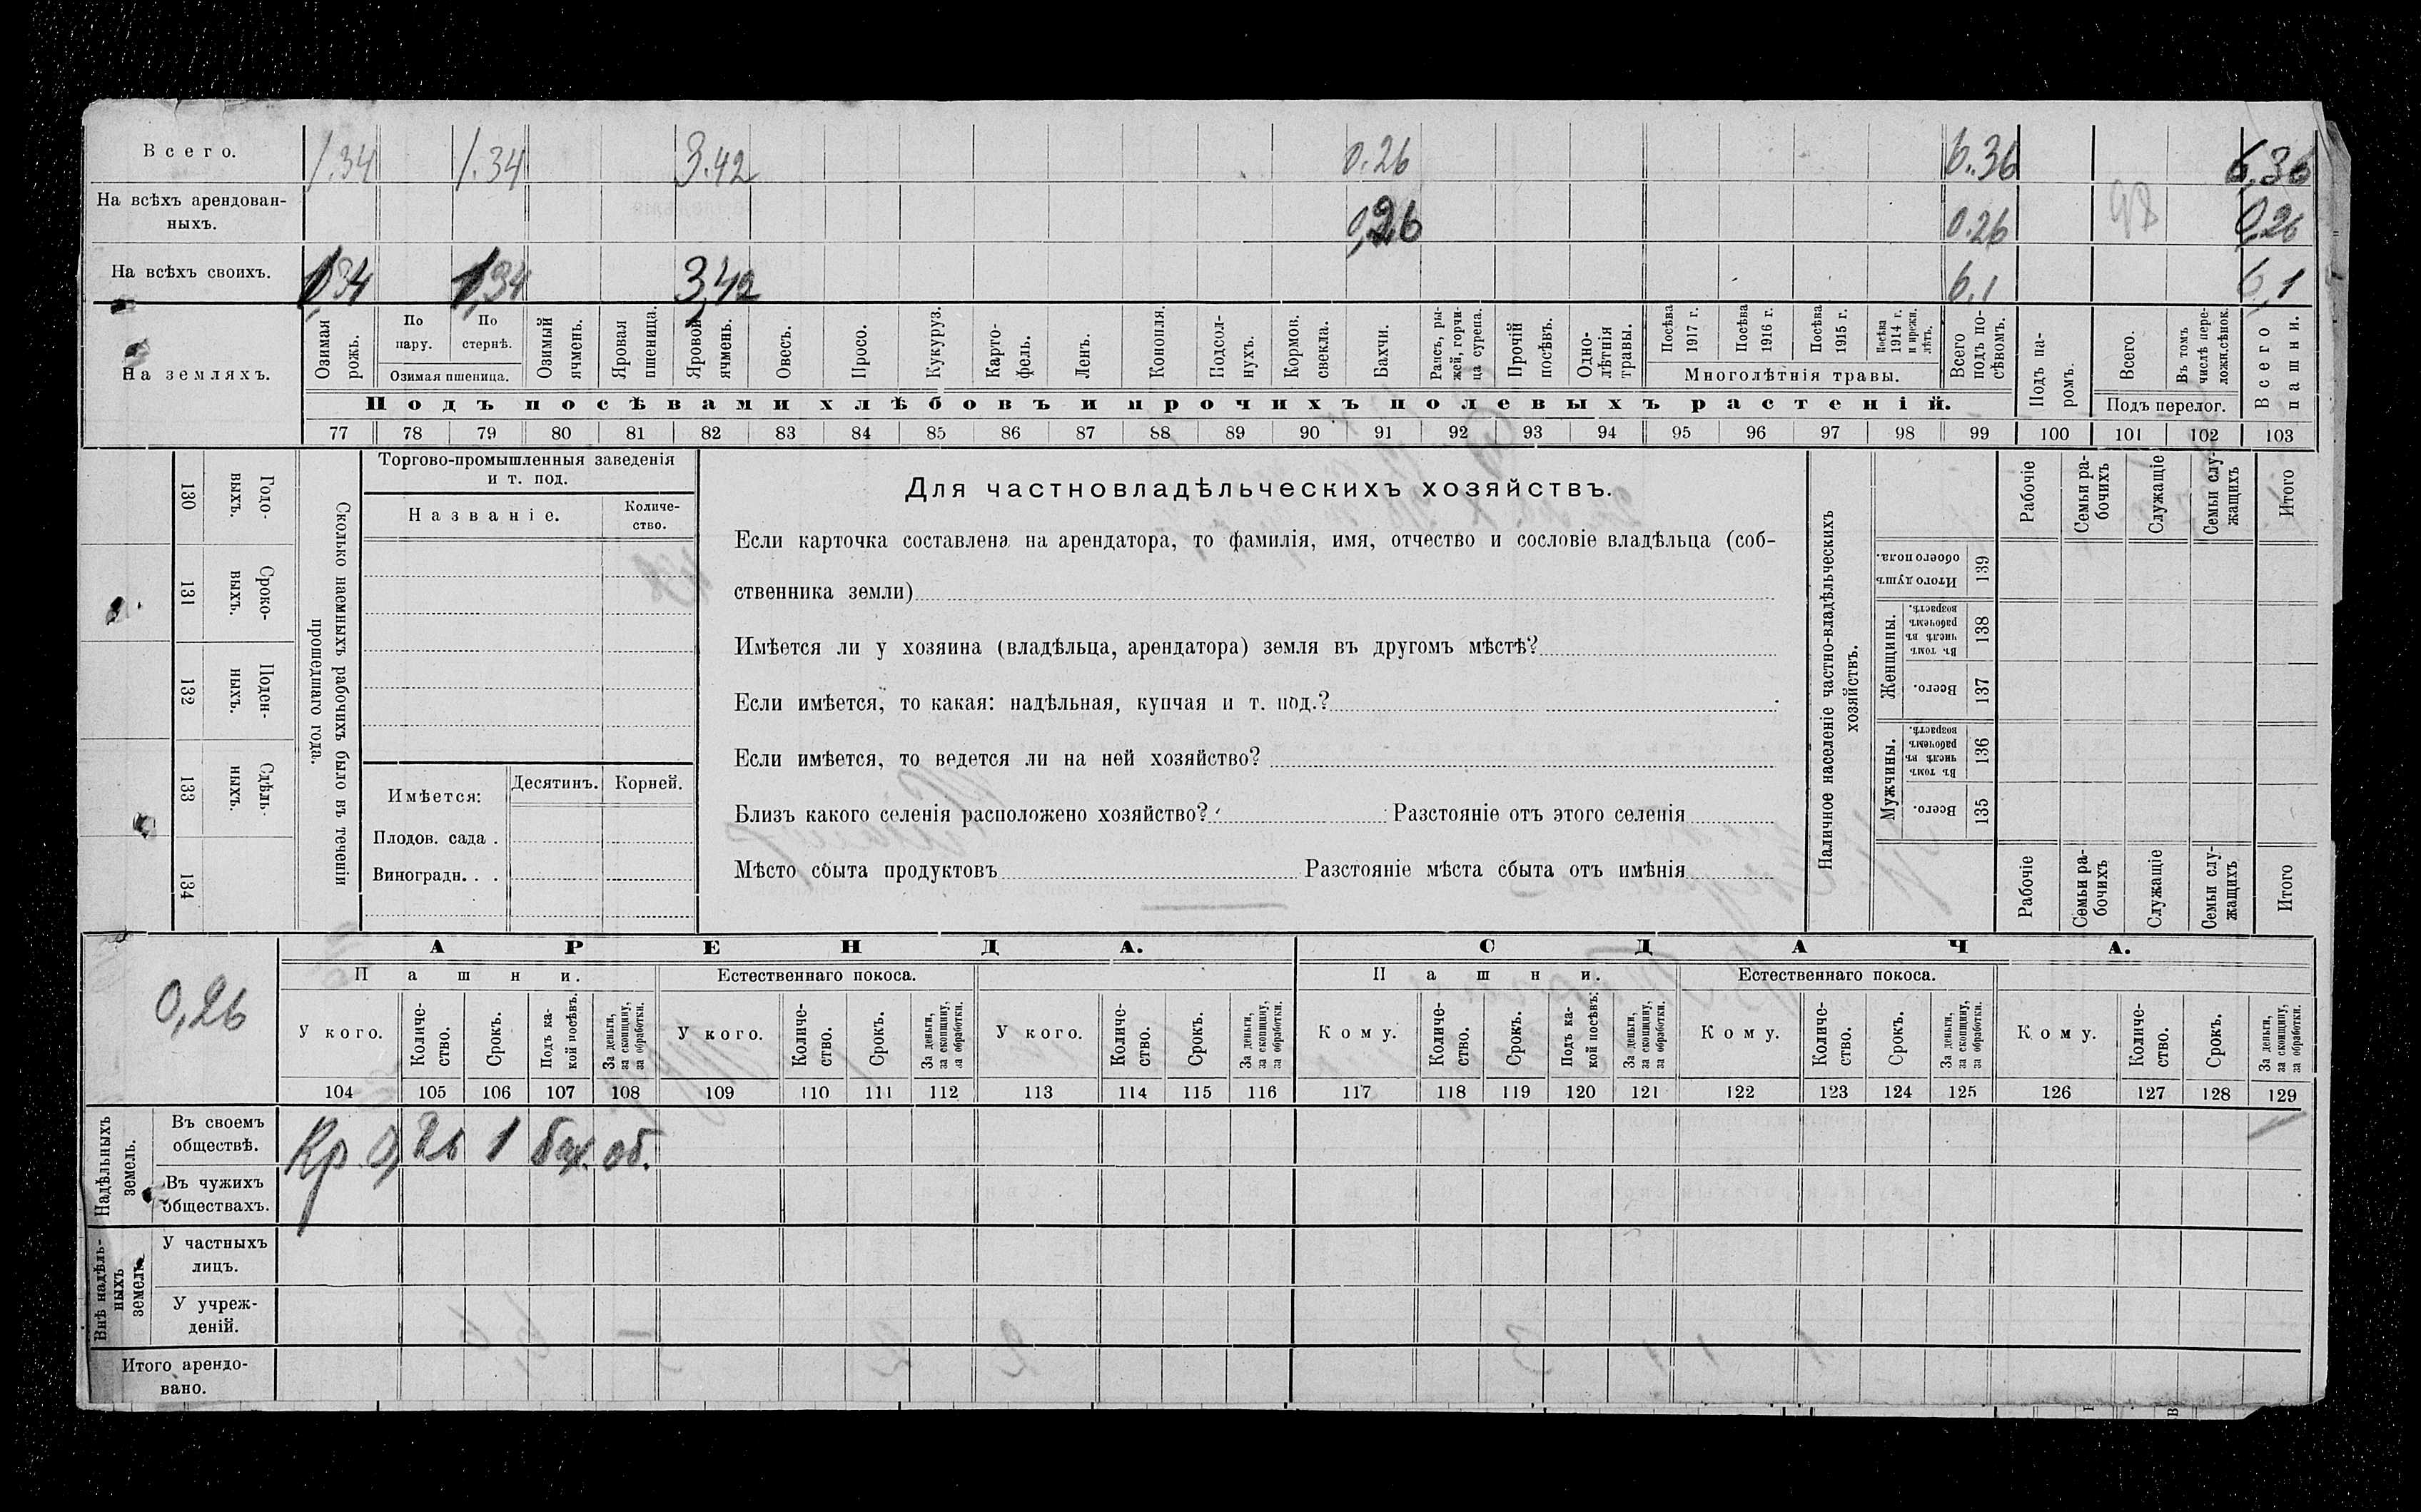 Всего. 1.34 1.34 3.42 0.26 6.36 6,36
На всѣхъ арендован-
ныхъ. 0,26 0.26 98 0,26
На всѣхъ своихъ. 1,34 1,34 3,42 6.1 6,1
На земляхъ.
Озимая рожь.
По пару.
По стернѣ.
Озимая пшеница.
Озимый ячмень.
Яровая пшеница.
Яровой ячмень.
Овесъ.
Просо.
Кукуруз.
Карто-
фель.
Ленъ.
Конопля.
Подсол-
нухъ.
Кормов. свекла.
Бахчи.
Рапсъ, ры-
жей, горчи-
ца сурепа.
Прочій посѣвъ.
Одно-
лѣтнія травы.
Посѣва 1917 г.
Посѣва 1916 г.
Посѣва 1915 г.
Посѣва 1914 г. и прежн. лѣтъ.
Многолѣтнія травы.
Всего подъ по-
сѣвомъ.
Подъ па-
ромъ.
Всего.
Въ томъ числѣ пере-
ложн.сѣнок.
Подъ перелог.
Всего пашни.
Подъ посѣвами хлѣбовъ и прочихъ полевыхъ растеній.
77 78 79 80 81 82 83 84 85 86 87 88 89 90 91 92 93 94 95 96 97 98 99 100 101 102 103
130 Годо-
выхъ.
131 Сроко-
выхъ.
132 Поден-
ныхъ.
133 Сдѣль-
ныхъ.
134
Сколько наемныхъ рабочихъ было въ теченіи
прошедшаго года.
Торгово-промышленныя заведенія
и т. под.
Названіе.
Количе-
ство.
Имѣется: Десятинъ. Корней.
Плодов. сада .
Виноградн. . .
Для частновладѣльческихъ хозяйствъ.
Если карточка составлена на арендатора, то фамилія, имя, отчество и сословіе владѣльца (соб-
ственника земли)
Имѣется ли у хозяина (владѣльца, арендатора) земля въ другомъ мѣстѣ?
Если имѣется, то какая: надѣльная, купчая и т. под.?
Если имѣется, то ведется ли на ней хозяйство?
Близъ какого селенія расположено хозяйство? Разстояніе отъ этого селенія
Мѣсто сбыта продуктовъ Разстояніе мѣста сбыта отъ имѣнія
Наличное населеніе частно-владѣльческихъ
хозяйствъ.
Рабочіе
Семьи ра-
бочихъ
Служащіе
Семьи слу-
жащихъ
Итого
Итого душъ обоего пола. 139
Женщины.
Въ томъ числѣ въ рабочемъ возрастѣ. 138
Всего. 137
Мужчины.
Въ томъ числѣ въ рабочемъ возрастѣ. 136
Всего. 135
Рабочіе
Семьи ра-
бочихъ
Служащіе
Семьи слу-
жащихъ
Итого
0,26
АРЕНДА. СДАЧА.
Пашни. Естественнаго покоса. Пашни. Естественнаго покоса.
У кого.
Количе-
ство.
Срокъ.
Подъ ка-
кой посѣвъ.
За деньги, за скопщину, за обработки.
У кого.
Количе-
ство.
Срокъ.
За деньги, за скопщину, за обработки.
У кого.
Количе-
ство.
Срокъ.
За деньги, за скопщину, за обработки.
Кому.
Количе-
ство.
Срокъ.
Подъ ка-
кой посѣвъ.
За деньги, за скопщину, за обработки.
Кому.
Количе-
ство.
Срокъ.
За деньги, за скопщину, за обработки.
Кому.
Количе-
ство.
Срокъ.
За деньги, за скопщину, за обработки.
104 105 106 107 108 109 110 111 112 113 114 115 116 117 118 119 120 121 122 123 124 125 126 127 128 129
Надѣльныхъ земель.
Въ своемъ
обществѣ. Кр 0,26 1 бах. об.
Въ чужихъ
обществахъ.
Внѣ надѣль-
ныхъ
земель.
У частныхъ
лицъ.
У учреж-
деній.
Итого арендо-
вано.